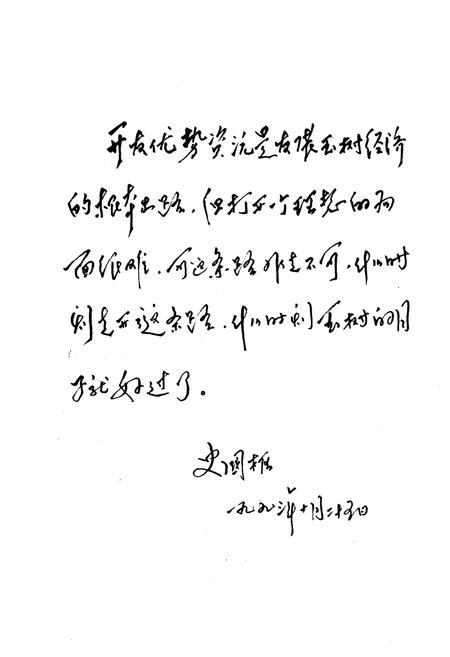 开发优势资源是发展玉树经济
的根本出路。但打开个理想的局
面很难。可这条路非走不可，什么时
刻走开这条路，什么时刻玉树的日
子就好过了。
史国枢
一九九三年十月二十五日